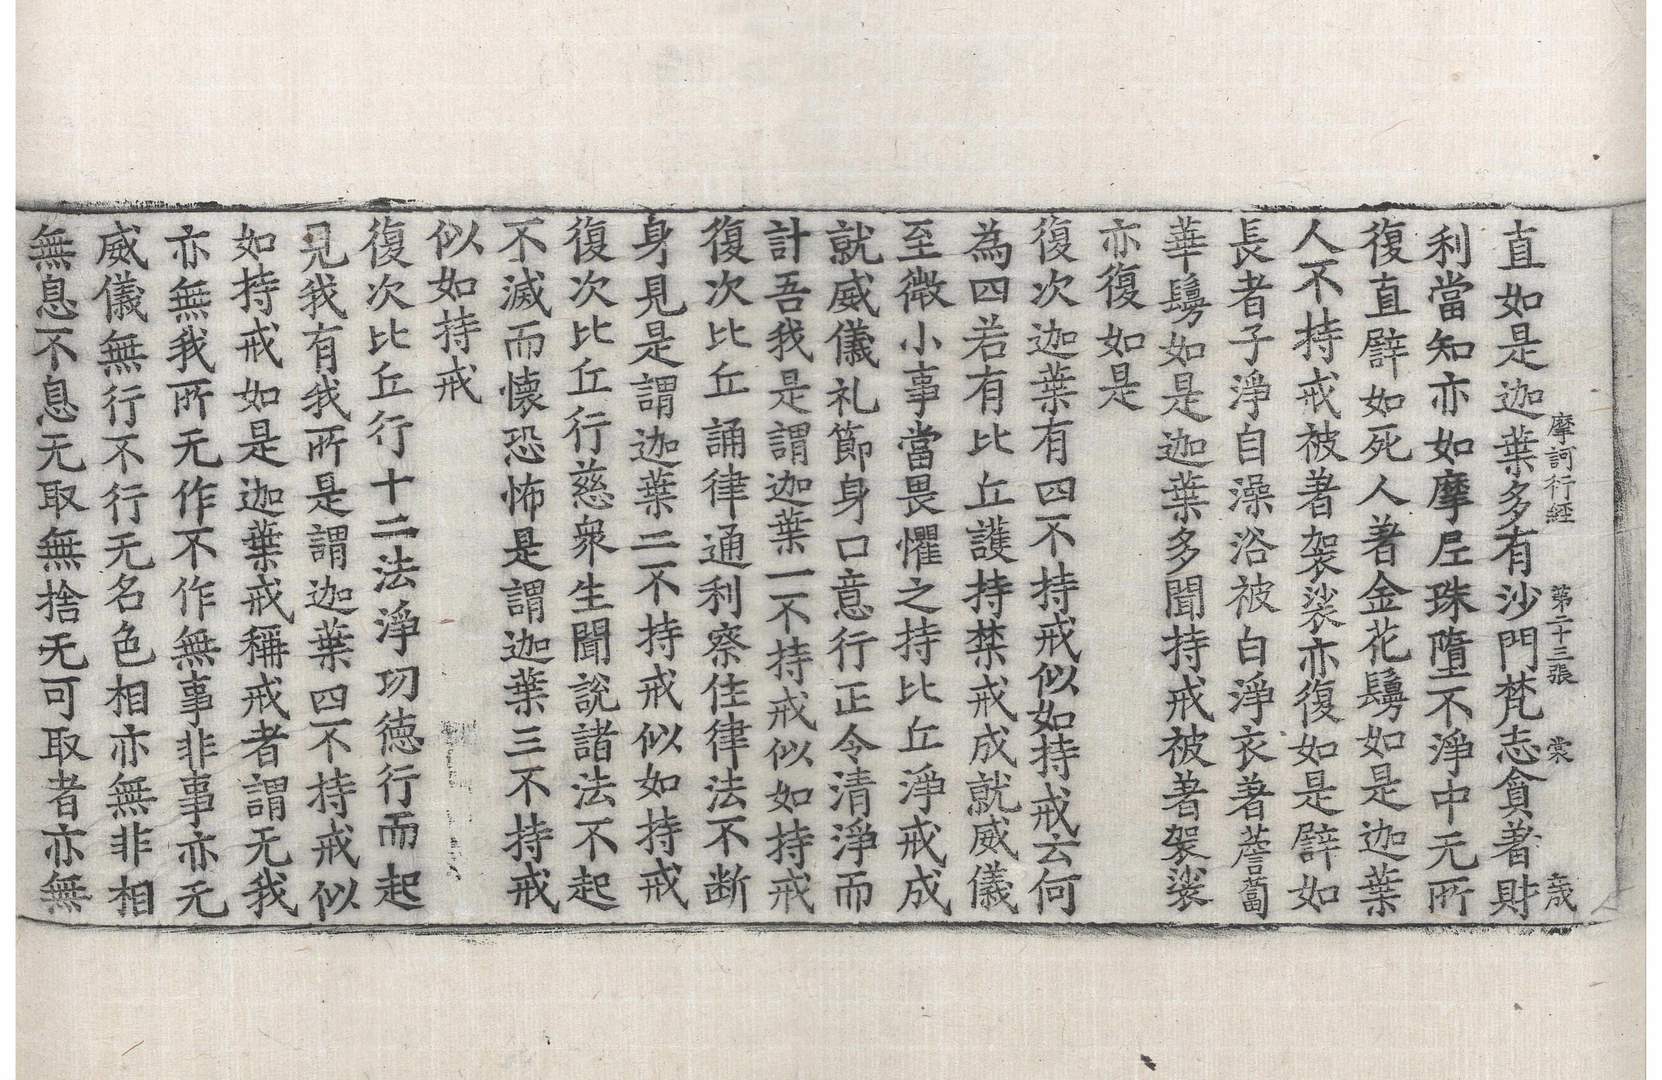 摩訶行經　第十三張　裳　歲
直如是迦葉多有沙門梵志貪著財
利當知亦如摩尼珠墮不淨中无所
復直譬如死人著金花鬘如是迦葉
人不持戒被著袈裟亦復如是譬如
長者子淨自澡浴被白淨衣著薝蔔
華鬘如是迦葉多聞持戒被著袈裟
亦復如是
復次迦葉有四不持戒似如持戒云何
為四若有比丘護持禁戒成就威儀
至微小事當畏懼之持比丘淨戒成
就威儀礼節身口意行正令清淨而
計吾我是謂迦葉一不持戒似如持戒
復次比丘誦律通利察住律法不断
身見是謂迦葉二不持戒似如持戒
復次比丘行慈衆生聞說諸法不起
不滅而懐恐怖是謂迦葉三不持戒
似如持戒
復次比丘行十二法淨功德行而起
見我有我所是謂迦葉四不持戒似
如持戒如是迦葉戒稱戒者謂无我
亦無我所无作不作無事非事亦无
威儀無行不行无名色相亦無非相
無息不息无取無捨无可取者亦無